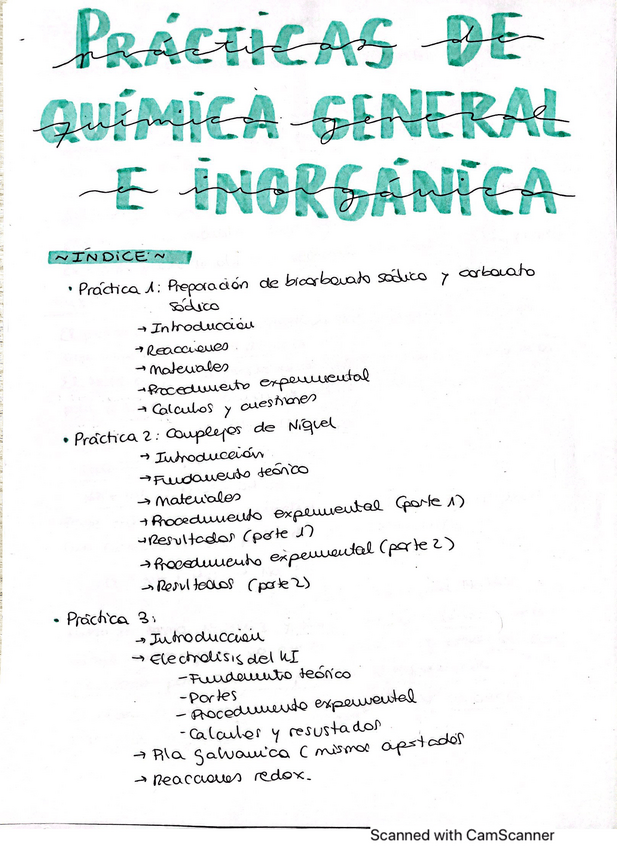 PRÁCTICAS DE
prácticas de
QUÍMICA GENERAL
química general
E INORGÁNICA
e inorgánica
~ÍNDICE~
• Práctica 1: Preparación de bicarbonato sódico y carbonato
sódico
→ Introducción
→ Reacciones
→ Materiales
→ Procedimiento experimental
→ Calculos y cuestiones
• Práctica 2: Complejos de Níquel
→ Introducción
→ Fundamento teórico
→ Materiales
→ Procedimiento experimental (parte 1)
→ Resultados (parte 1)
→ Procedimiento experimental (parte 2)
→ Resultados (parte 2)
• Práctica 3:
→ Introducción
→ Electrolisis del KI
- Fundamento teórico
- Partes
- Procedimiento experimental
- Calculos y resustados
→ Pila galvanica (mismos apartados
→ Reacciones redox.
Scanned with CamScanner